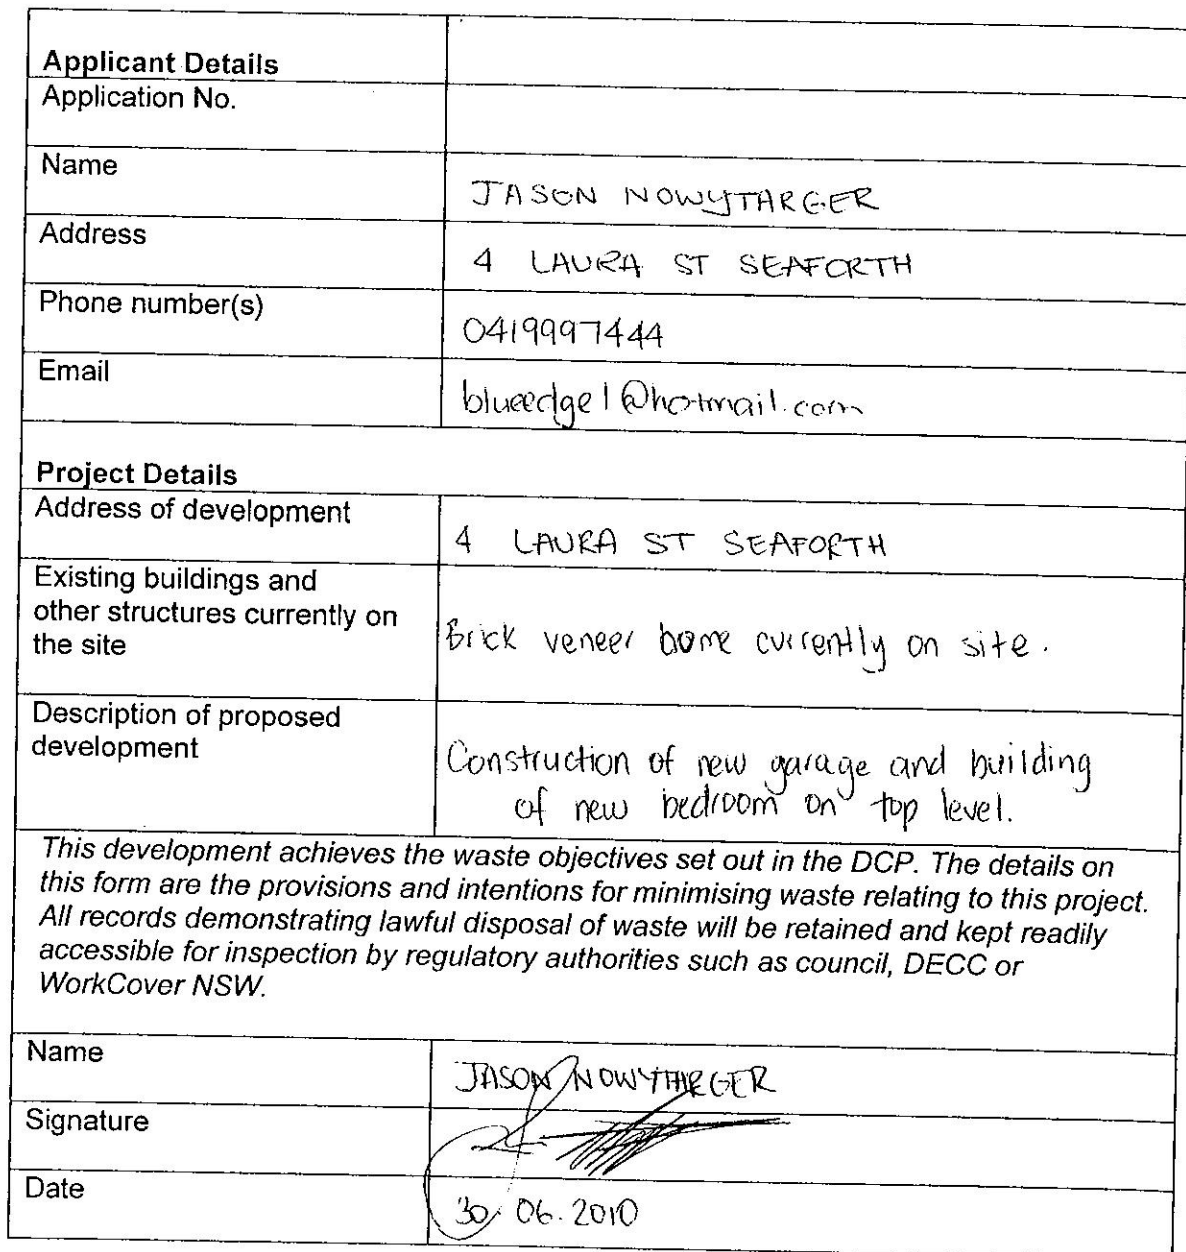 Applicant Details
Application No.
Name
JASON NOWYTARGER
Address
4 LAURA ST SEAFORTH
Phone number(s)
0419997444
Email
blueedge1@hotmail.com
Project Details
Address of development
4 LAURA ST SEAFORTH
Existing buildings and
other structures currently on
the site
Brick veneer home currently on site.
Description of proposed
development
Construction of new garage and building
of new bedroom on top level.
This development achieves the waste objectives set out in the DCP. The details on
this form are the provisions and intentions for minimising waste relating to this project.
All records demonstrating lawful disposal of waste will be retained and kept readily
accessible for inspection by regulatory authorities such as council, DECC or
WorkCover NSW.
Name
JASON NOWYTARGER
Signature
Date
30.06.2010